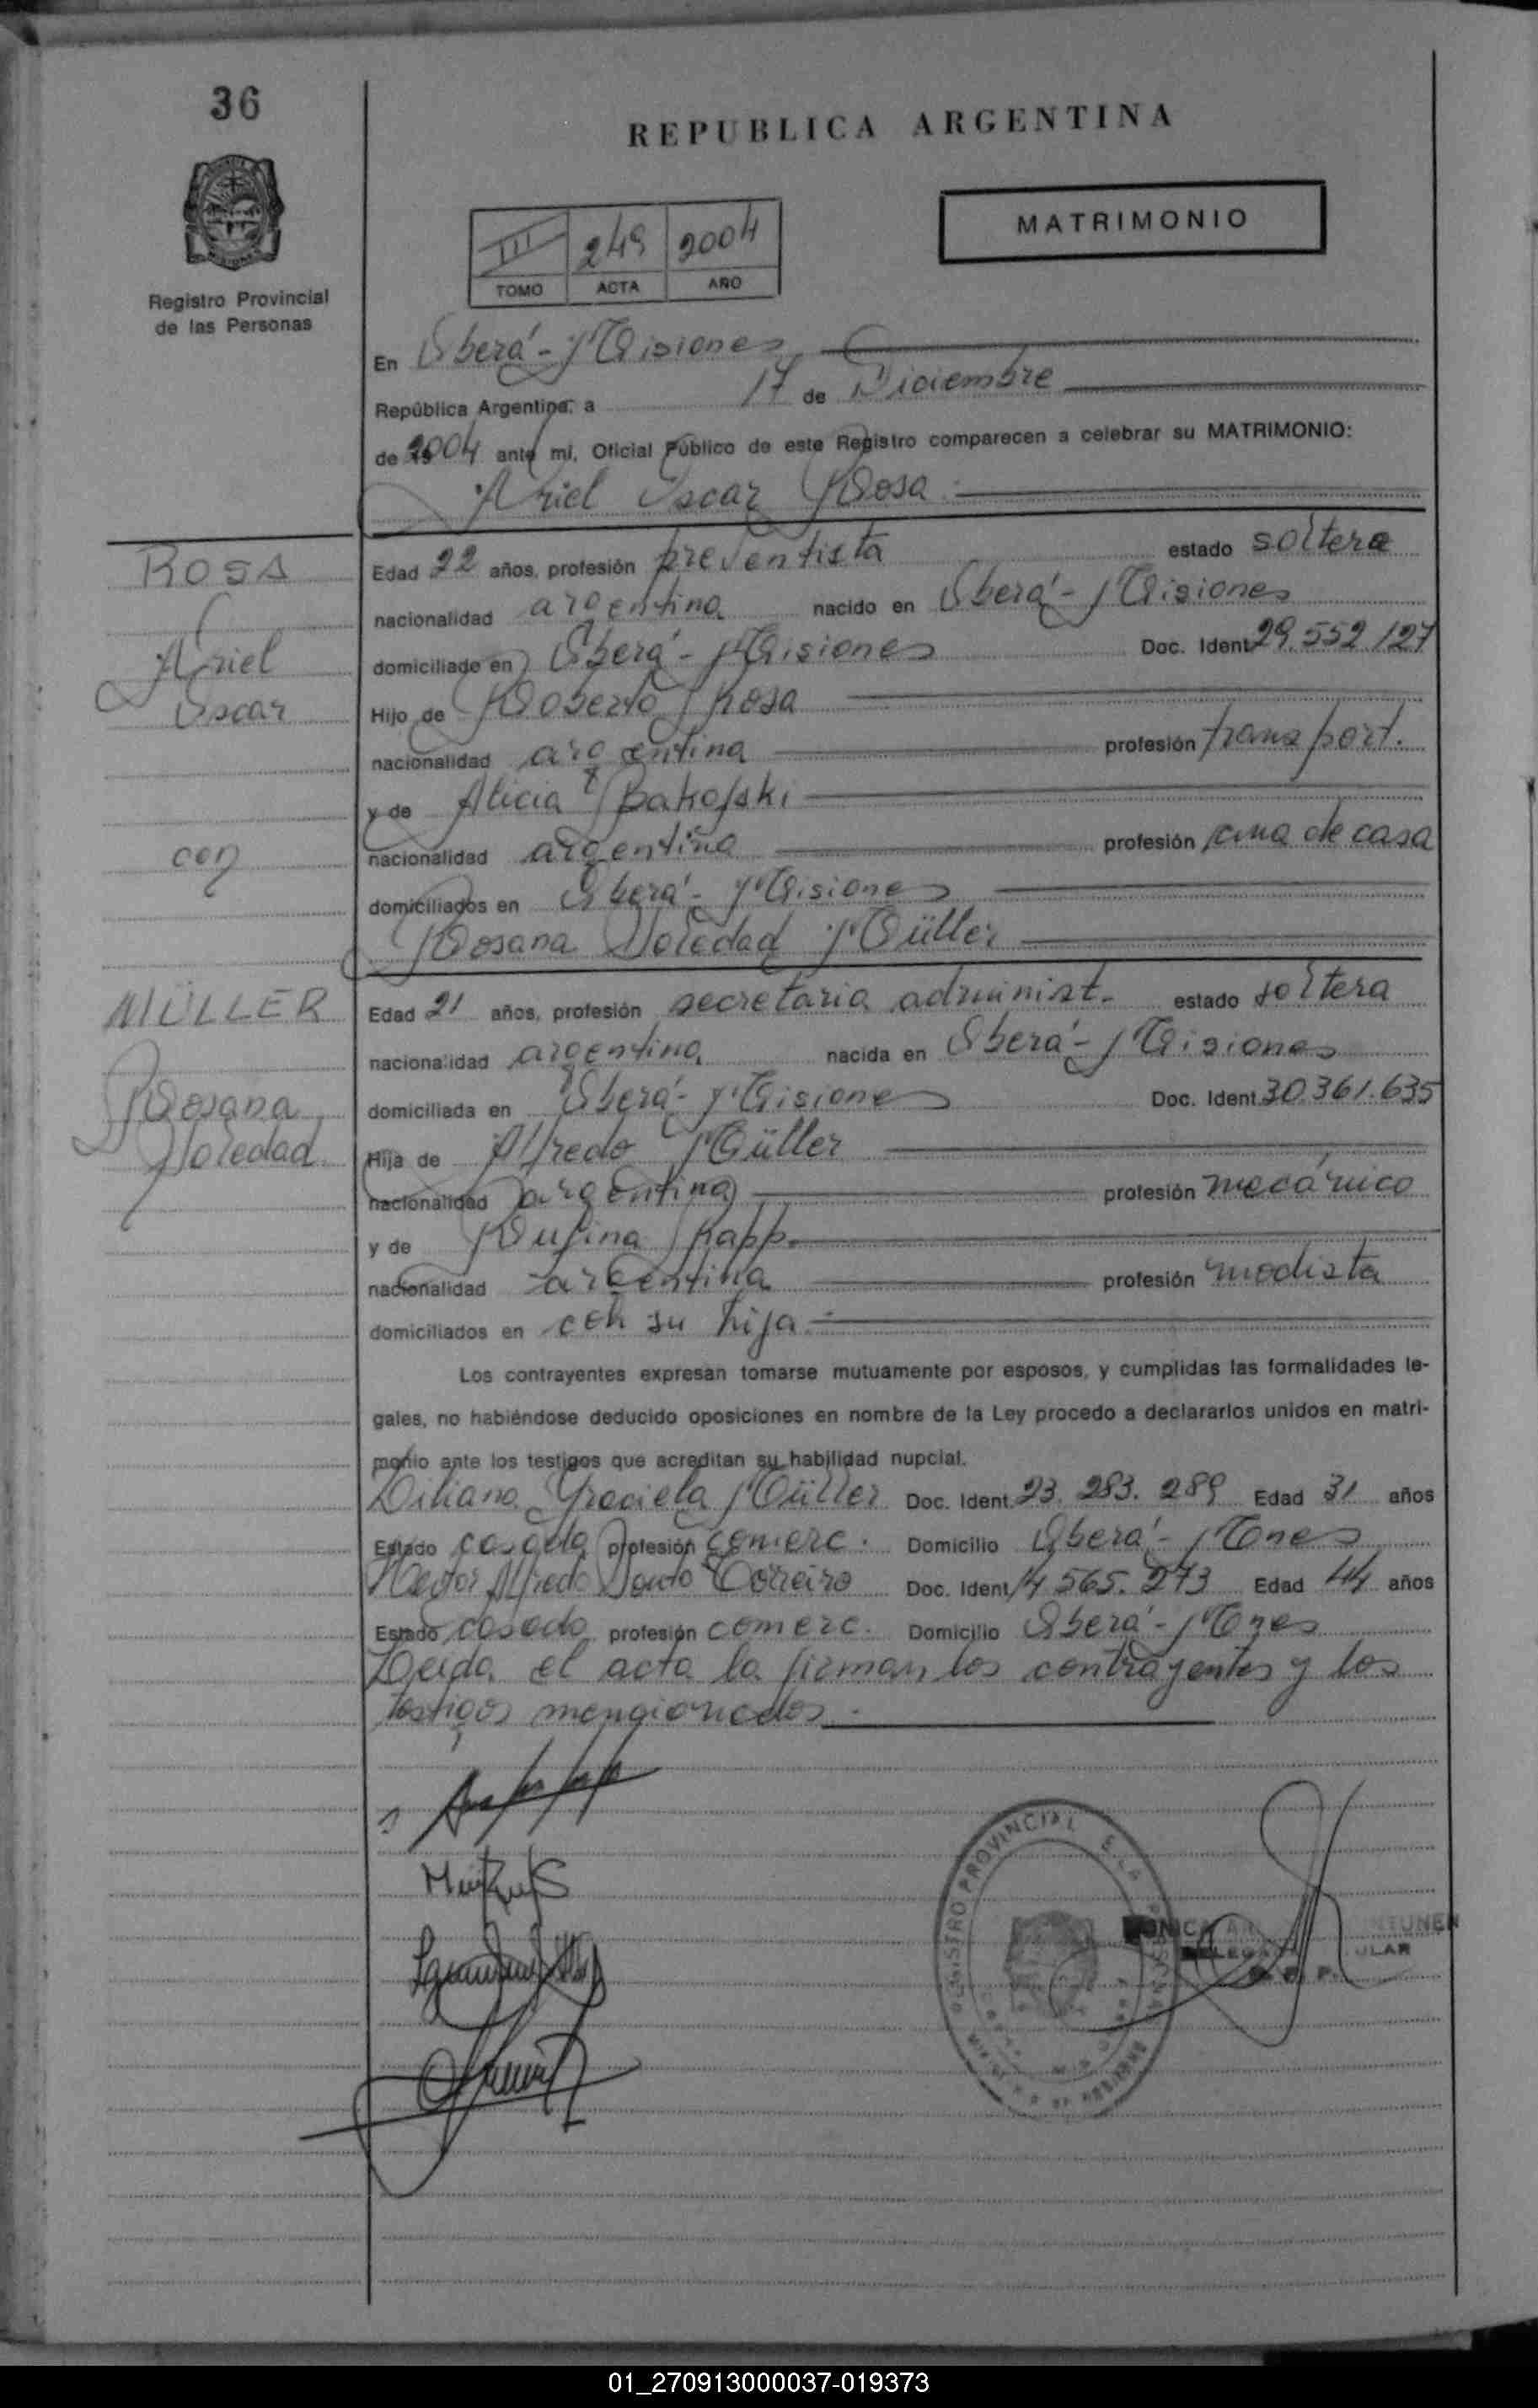 36
REPUBLICA ARGENTINA
MATRIMONIO
III 249 2004
TOMO ACTA AÑO
Registro Provincial
de las Personas
En Oberá - Misiones
República Argentina, a 17 de Diciembre
de 2004 ante mí, Oficial Público de este Registro comparecen a celebrar su MATRIMONIO:
Ariel Oscar Rosa.
ROSA
Ariel
Oscar
con
MÜLLER
Rosana
Soledad
Edad 22 años, profesión preventista estado soltero
nacionalidad argentina nacido en Oberá - Misiones
domiciliado en Oberá - Misiones Doc. Ident. 29.552.127
Hijo de Roberto Rosa
nacionalidad argentina profesión transport.
y de Alicia
nacionalidad argentina profesión ama de casa
domiciliados en Oberá - Misiones
Rosana Soledad Müller
Edad 21 años, profesión secretaria administ. estado soltera
nacionalidad argentina nacida en Oberá - Misiones
domiciliada en Oberá - Misiones Doc. Ident. 30.361.635
Hija de Alfredo Müller
nacionalidad argentina profesión mecánico
y de Rufina Rapp.
nacionalidad argentina profesión modista
domiciliados en con su hija.
Los contrayentes expresan tomarse mutuamente por esposos, y cumplidas las formalidades le-
gales, no habiéndose deducido oposiciones en nombre de la Ley procedo a declararlos unidos en matri-
monio ante los testigos que acreditan su habilidad nupcial.
Liliana Graciela Müller Doc. Ident. 23.283.289 Edad 31 años
Estado casada profesión comerc. Domicilio Oberá - Mnes
Hector Alfredo Souto Correiro Doc. Ident. 14.565.273 Edad 44 años
Estado casado profesión comerc. Domicilio Oberá - Mnes
Leída el acta la firman los contrayentes y los
testigos mencionados.
REGISTRO PROVINCIAL
01_270913000037-019373